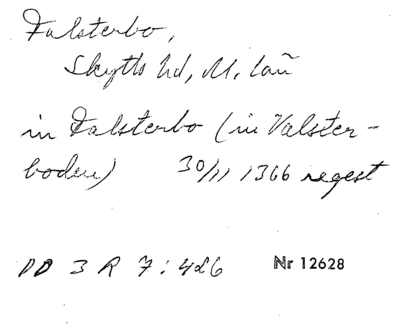 Falsterbo,
Skytts hd, M. län
in Falsterbo (in Valster-
boden) 30/11 1366 regest
DD 3 R 7:426 Nr 12628